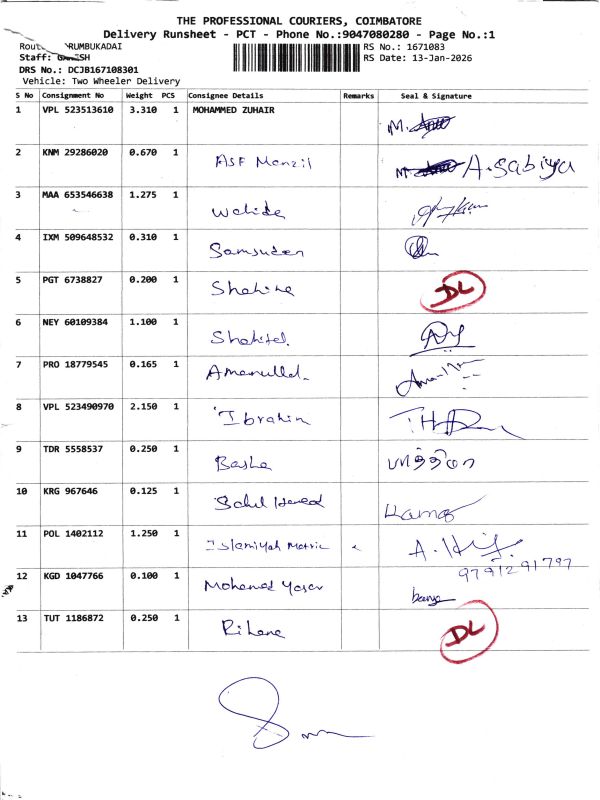 THE PROFESSIONAL COURIERS, COIMBATORE
Delivery Runsheet - PCT - Phone No.:9047080280 - Page No.:1
RUMBUKADAI
RS No.: 1671083
Staff:
RS Date: 13-Jan-2026
DRS No.: DCJB167108301
Vehicle: Two Wheeler Delivery
S No Consignment No Weight PCS Consignee Details Remarks Seal & Signature
1 VPL 523513610 3.310 1 MOHAMMED ZUHAIR
2 KNM 29286020 0.670 1 ASF Manzil A. Sabiya
3 MAA 653546638 1.275 1 Wahida
4 IXM 509648532 0.310 1 Samsudeen
5 PGT 6738827 0.200 1 Shahina DL
6 NEY 60109384 1.100 1
7 PRO 18779545 0.165 1 Amanulla
8 VPL 523490970 2.150 1 Ibrahim
9 TDR 5558537 0.250 1 Basha
10 KRG 967646 0.125 1
11 POL 1402112 1.250 1 Islamiyah Matric
9791291797
12 KGD 1047766 0.100 1 Mohamed Yasar
13 TUT 1186872 0.250 1 Rihana DL